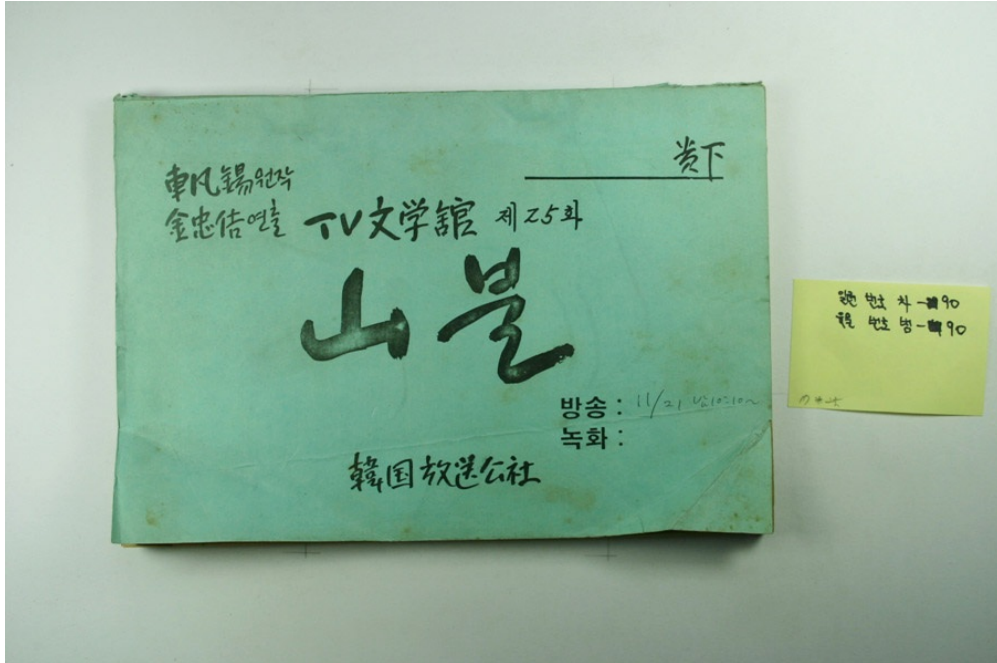 貴下
車凡錫 원작
金忠佶 연출
TV文学館 제25화
山불
방송 : 11/21
녹화 :
韓国放送公社
번호 차-90
번호 범-90